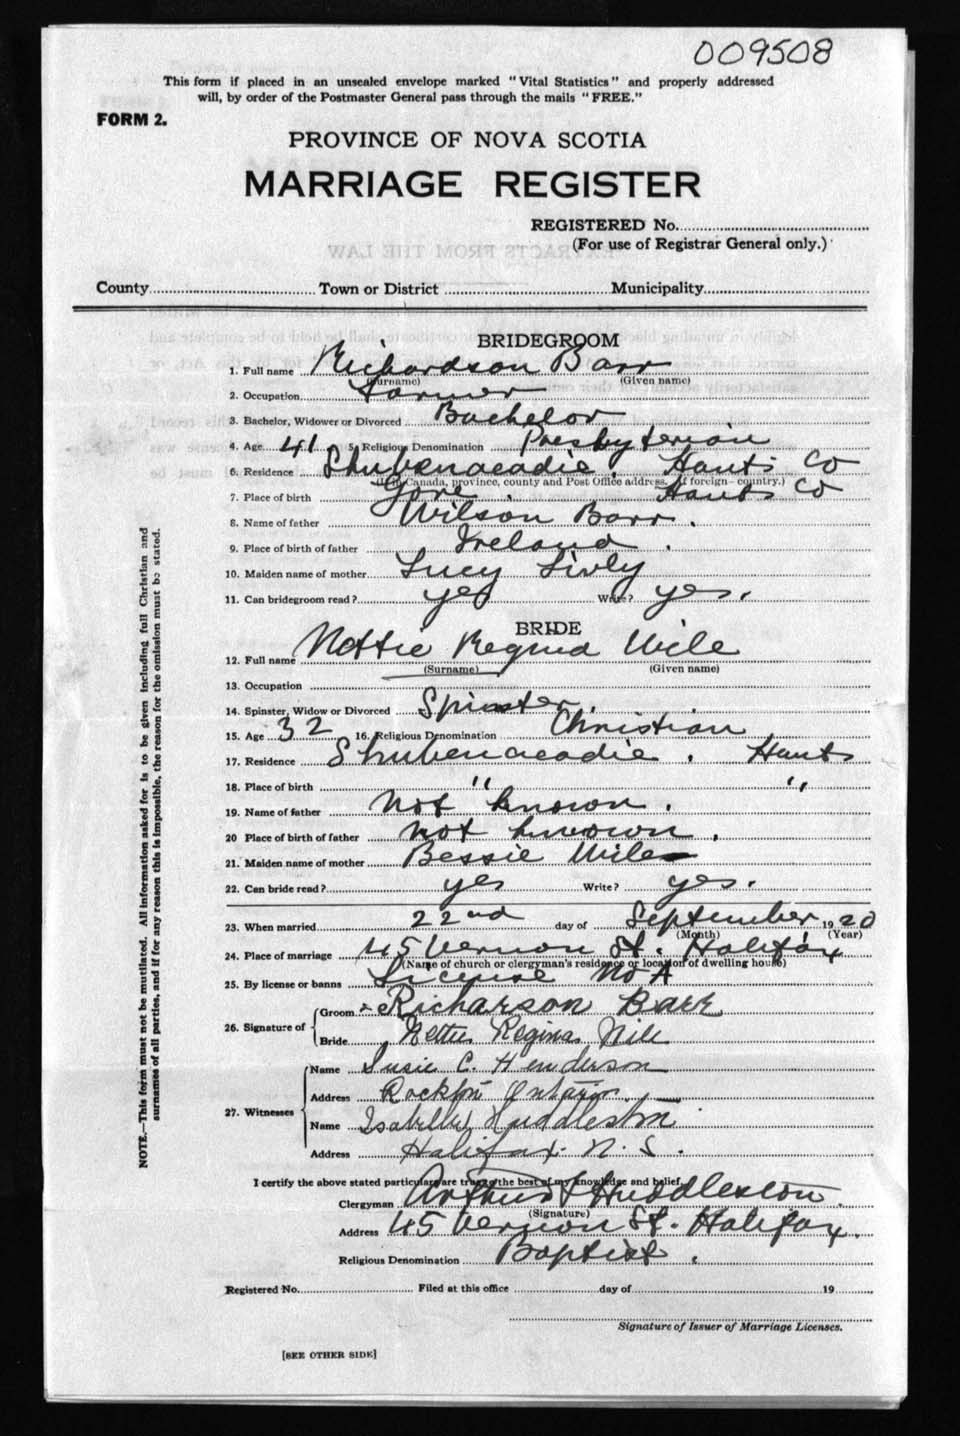 009508
This form if placed in an unsealed envelope marked "Vital Statistics" and properly addressed
will, by order of the Postmaster General pass through the mails "FREE."
FORM 2.
PROVINCE OF NOVA SCOTIA
MARRIAGE REGISTER
REGISTERED No.
(For use of Registrar General only.)
County Town or District Municipality
BRIDEGROOM
1. Full name Richardson Barr
(Surname) (Given name)
2. Occupation Farmer
3. Bachelor, Widower or Divorced Bachelor
4. Age 41 5. Religious Denomination Presbyterian
6. Residence Shubenacadie. Hants Co
(If in Canada, province, county and Post Office address. If foreign—country.)
7. Place of birth Gore. Hants Co
8. Name of father Wilson Barr.
9. Place of birth of father Ireland.
10. Maiden name of mother Lucy Sivly
11. Can bridegroom read? yes Write? yes.
BRIDE
12. Full name Nettie Regina Wile
(Surname) (Given name)
13. Occupation
14. Spinster, Widow or Divorced Spinster.
15. Age 32 16. Religious Denomination Christian
17. Residence Shubenacadie. Hants
18. Place of birth " "
19. Name of father not known.
20 Place of birth of father not known.
21. Maiden name of mother Bessie Wile
22. Can bride read? yes Write? yes.
23. When married 22nd day of September 1920
(Month) (Year)
24. Place of marriage 45 Vernon St. Halifax
(Name of church or clergyman's residence or location of dwelling house)
25. By license or banns License No A
26. Signature of Groom Richarson Barr
Bride Nettie Regina Wile
27. Witnesses Name Susie C. Henderson
Address Rockport Ontario
Name Isabelle Huddleston
Address Halifax. N. S.
I certify the above stated particulars are true to the best of my knowledge and belief.
Clergyman Arthur Huddleston.
(Signature)
Address 45 Vernon St. Halifax.
Religious Denomination Baptist.
Registered No. Filed at this office day of 19
Signature of Issuer of Marriage Licenses.
[SEE OTHER SIDE]
NOTE.—This form must not be mutilated. All information asked for is to be given including full Christian and
surnames of all parties, and if for any reason this is impossible, the reason for the omission must be stated.